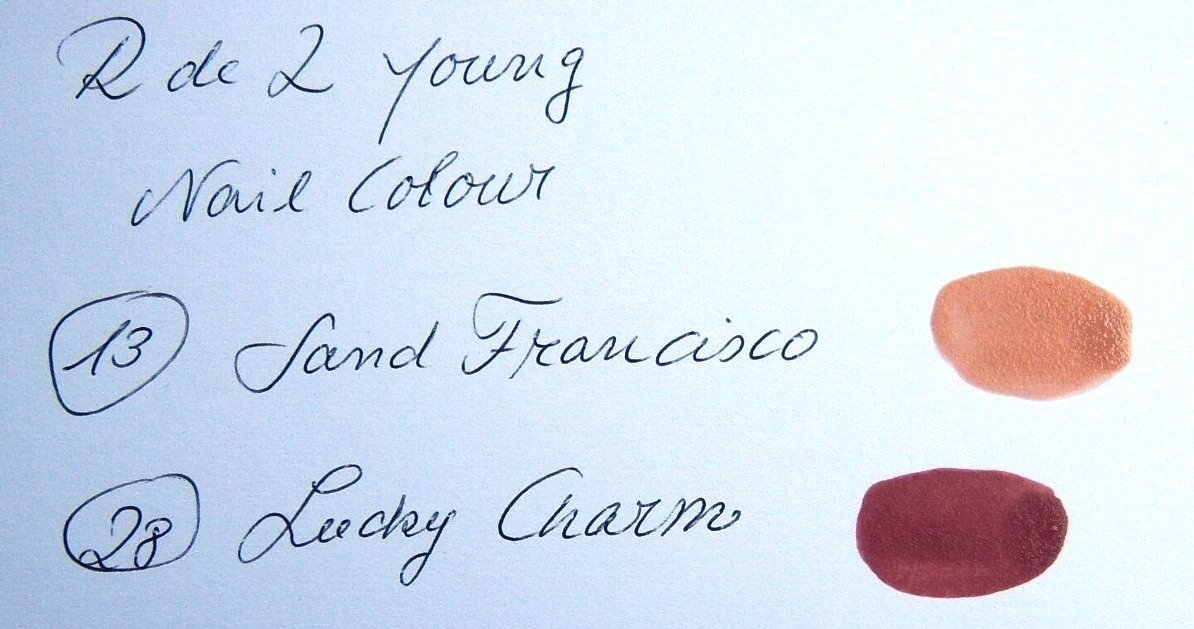 R de L young
Nail Colour
13 Sand Francisco
28 Lucky Charm